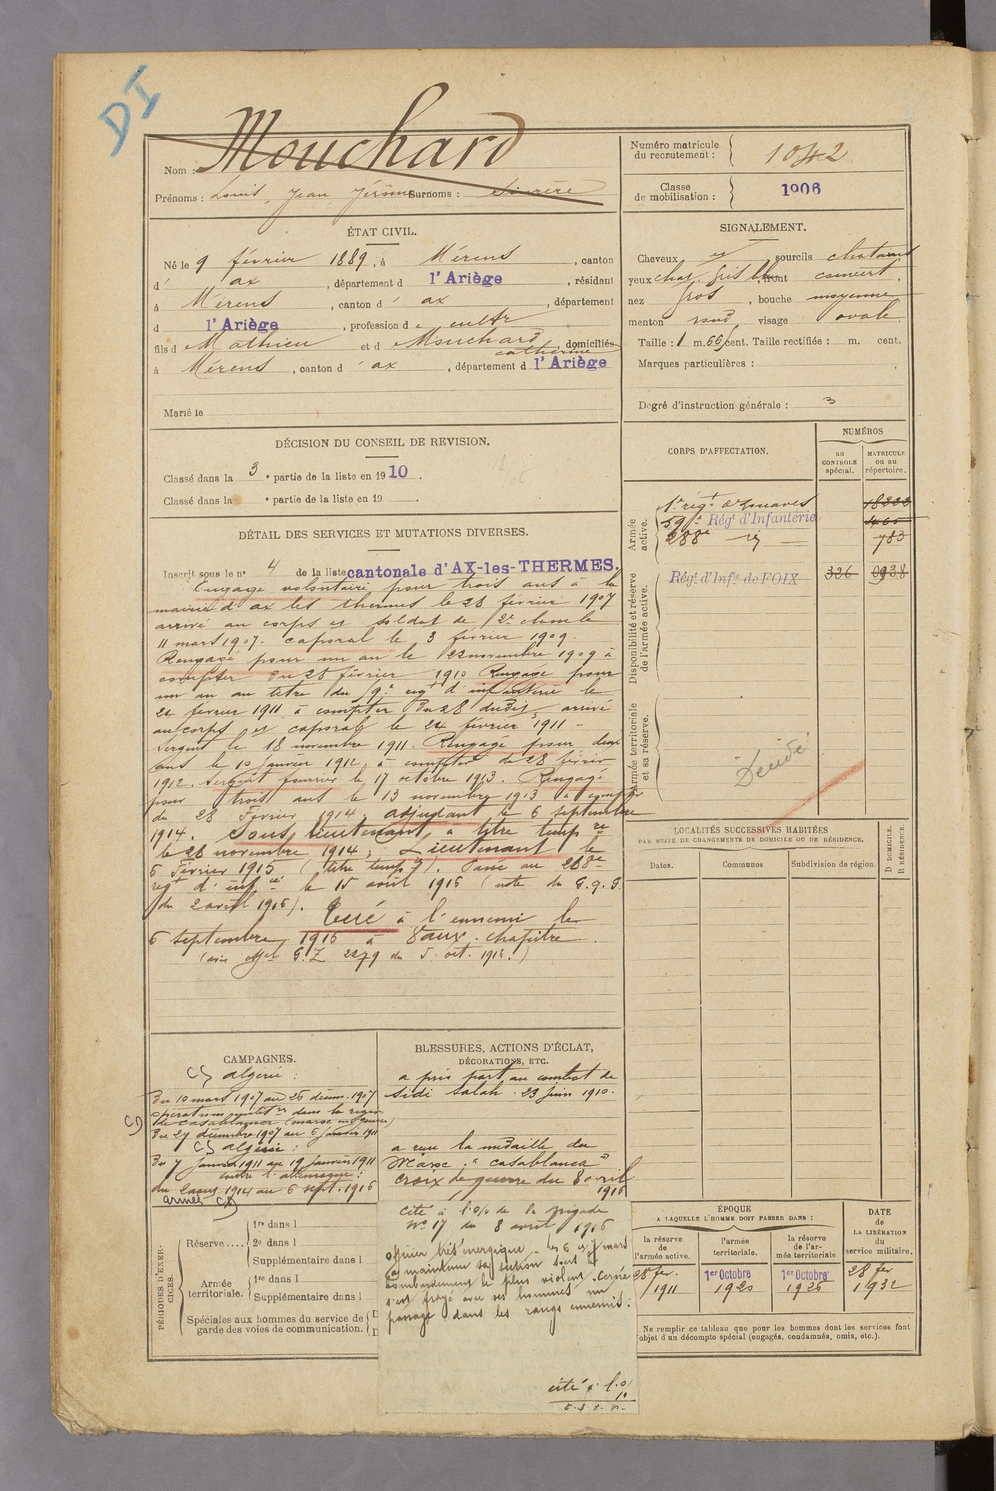 DI
Nom : Mouchard
Prénoms : Louis, Jean Jérôme Surnoms :
Numéro matricule du recrutement : 1042
Classe de mobilisation : 1906
ÉTAT CIVIL.
Né le 9 février 1889, à Mérens, canton
d' ax, département d l'Ariège, résidant
à Mérens, canton d' ax, département
d l'Ariège, profession d cultr
fils d Mathieu et d Mouchard catherine domiciliés
à Mérens, canton d' ax, département d l'Ariège
Marié le
SIGNALEMENT.
Cheveux sourcils chatains
yeux chat. gris bl front couvert
nez gros, bouche moyenne
menton rond, visage ovale
Taille : 1 m. 66 cent. Taille rectifiée : m. cent.
Marques particulières :
Degré d'instruction générale : 3
DÉCISION DU CONSEIL DE REVISION.
Classé dans la 3e partie de la liste en 1910.
Classé dans la e partie de la liste en 19 .
DÉTAIL DES SERVICES ET MUTATIONS DIVERSES.
Inscrit sous le n° 4 de la liste cantonale d'AX-les-THERMES.
Engagé volontaire pour trois ans à la
mairie d'ax les thermes le 28 février 1907
arrivé au corps et soldat de 2e classe le
11 mars 1907. caporal le 3 février 1909.
Rengagé pour un an le 22 novembre 1909 à
compter du 28 février 1910 Rengagé pour
un an au titre du 9e regt d'infanterie le
24 février 1911 à compter du 28 dudit, arrivé
au corps et caporal le 24 février 1911 -
Sergent le 18 novembre 1911. Rengagé pour deux
ans le 10 janvier 1912, à compter du 28 février
1912. Sergent fourrier le 17 octobre 1913. Rengagé
pour trois ans le 13 novembre 1913 à compter
du 28 Février 1914, adjudant le 6 septembre
1914. Sous lieutenant, à titre tempre
le 28 novembre 1914; Lieutenant le
6 Février 1915 (titre tempre). Passé au 288e
regt d'infie le 15 août 1916 (note du G.Q.G.
du 2 avril 1916). Tué à l'ennemi le
6 septembre 1916 à Vaux-chapitre.
(avis offel G.Z 2279 du 5. oct. 1916.)
CORPS D'AFFECTATION.
NUMÉROS
au CONTROLE spécial.
MATRICULE ou au répertoire.
Armée active.
1er regt de zouaves
59e Régt d'Infanterie
288e id — 783
Disponibilité et réserve de l'armée active.
Régt d'Infie de FOIX 326 0938
Armée territoriale et sa réserve.
Décédé
LOCALITÉS SUCCESSIVES HABITÉES
PAR SUITE DE CHANGEMENTS DE DOMICILE OU DE RÉSIDENCE.
Dates. Communes Subdivision de région. D DOMICILE. R RÉSIDENCE.
CAMPAGNES.
algérie :
Du 10 mars 1907 au 26 décem. 1907
opérations militres dans la région
de casablanca (maroc en guerre)
Du 27 décembre 1907 au 6 janvier 1911
algérie :
Du 7 janvier 1911 au 19 janvier 1911
contre l'allemagne :
du 2 aout 1914 au 6 sept. 1916
armée
BLESSURES, ACTIONS D'ÉCLAT,
DÉCORATIONS, ETC.
a pris part au combat de
Sidi Salah. 23 juin 1910.
a reçu la médaille du
Maroc "casablanca"
croix de guerre du 8 avril
1916
cité à l'o/o de la brigade
N° 17 du 8 avril 1916
officier très énergique, les 6 et 7 mars
a maintenu sa section sous le
bombardement le plus violent. Cerné
s'est frayé avec ses hommes un
passage dans les rangs ennemis.
cité à l'o
PÉRIODES D'EXERCICES.
Réserve....
1re dans l
2e dans l
Supplémentaire dans l
Armée territoriale.
1re dans l
Supplémentaire dans l
Spéciales aux hommes du service de garde des voies de communication.
ÉPOQUE
A LAQUELLE L'HOMME DOIT PASSER DANS :
la réserve de l'armée active.
l'armée territoriale.
la réserve de l'armée territoriale
DATE de LA LIBÉRATION du service militaire.
28 fer. 1911
1er Octobre 1920
1er Octobre 1926
28 fer 1932
Ne remplir ce tableau que pour les hommes dont les services font
objet d'un décompte spécial (engagés, condamnés, omis, etc.).